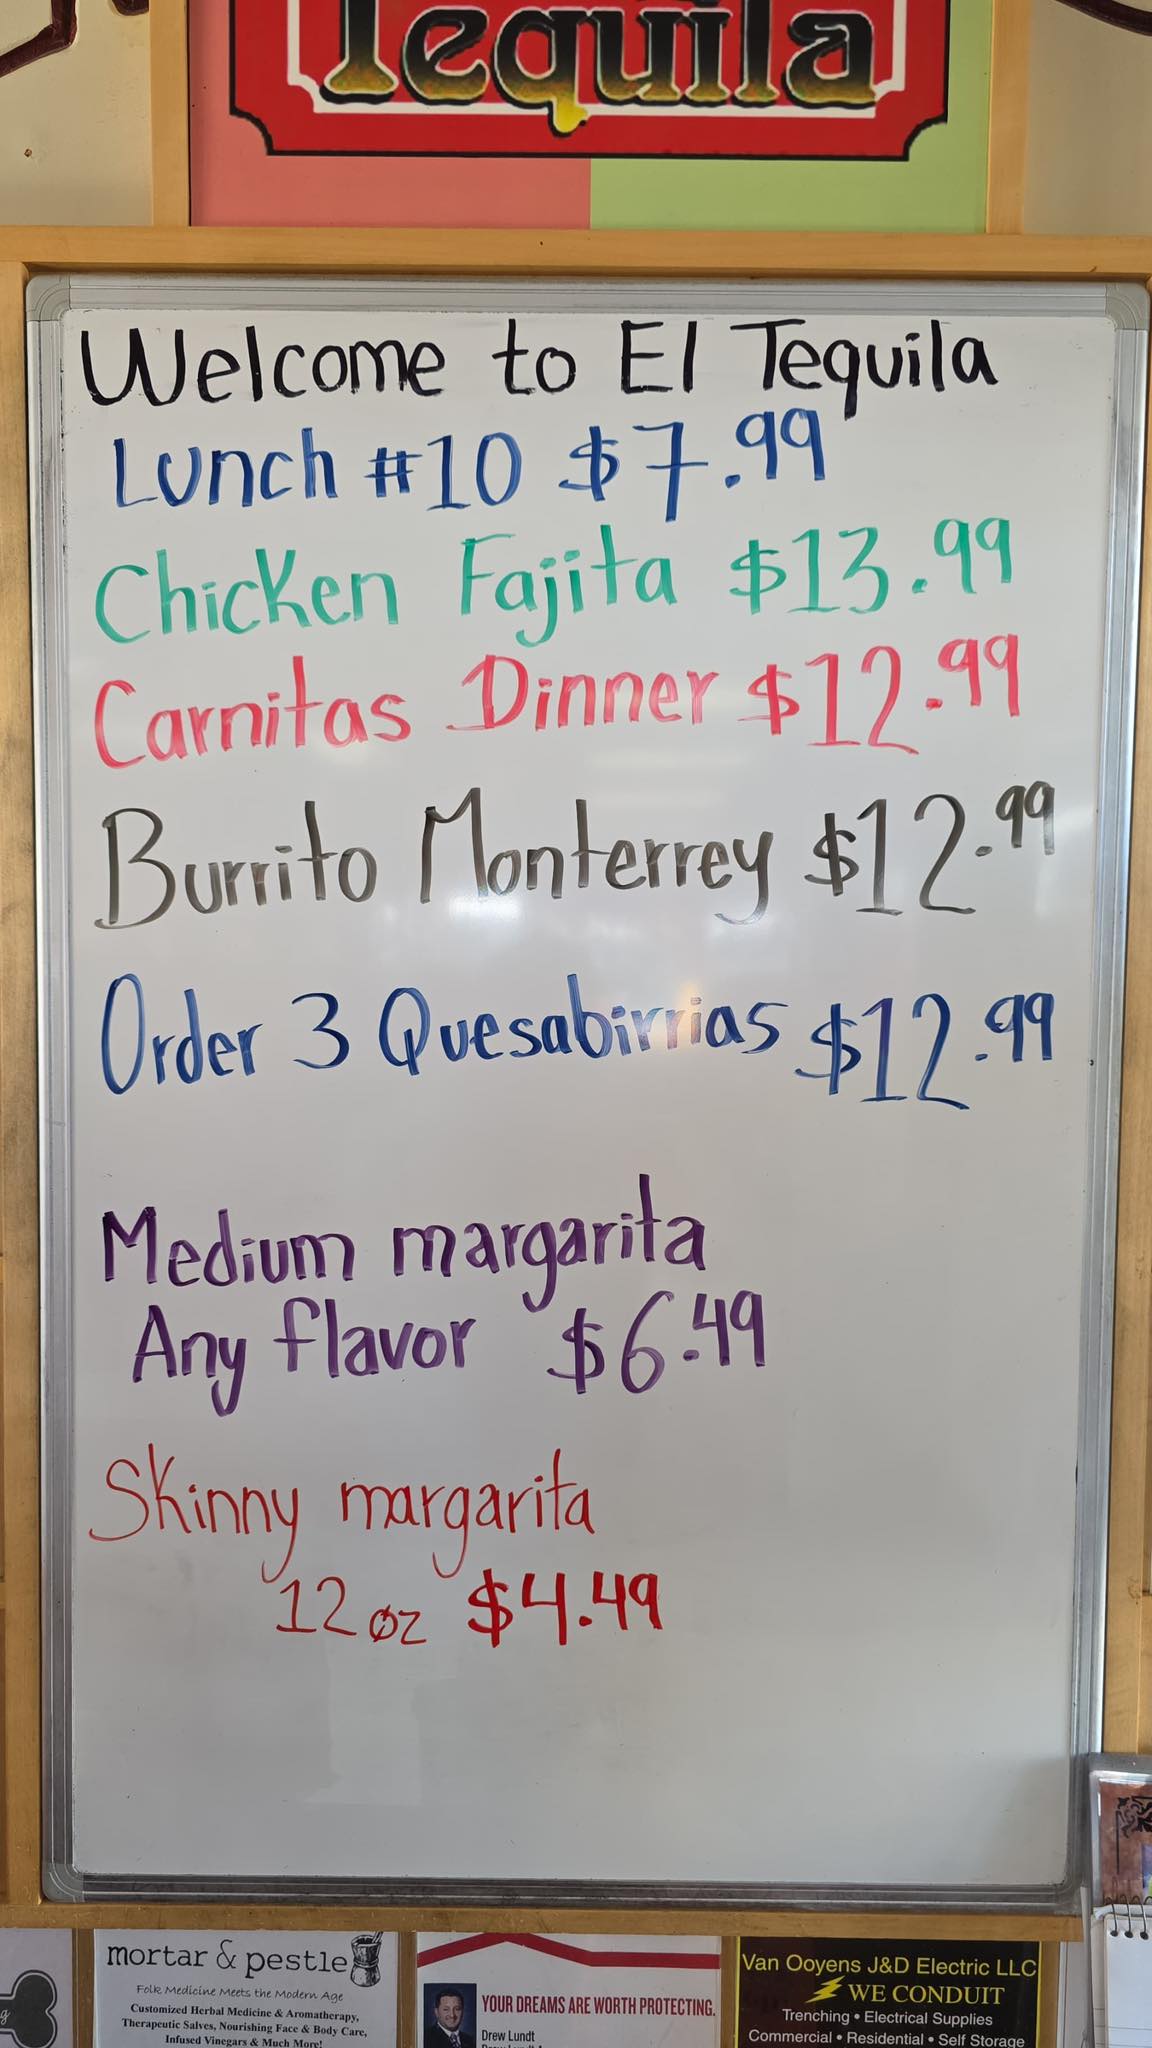 Tequila
Welcome to El Tequila
Lunch #10 $7.99
Chicken Fajita $13.99
Carnitas Dinner $12.99
Burrito Monterrey $12.99
Order 3 Quesabirrias $12.99
Medium margarita
Any flavor $6.49
Skinny margarita
12 oz $4.49
mortar & pestle
Folk Medicine Meets the Modern Age
Customized Herbal Medicine & Aromatherapy,
Therapeutic Salves, Nourishing Face & Body Care,
Infused Vinegars & Much More!
YOUR DREAMS ARE WORTH PROTECTING.
Drew Lundt
Van Ooyens J&D Electric LLC
WE CONDUIT
Trenching • Electrical Supplies
Commercial • Residential • Self Storage